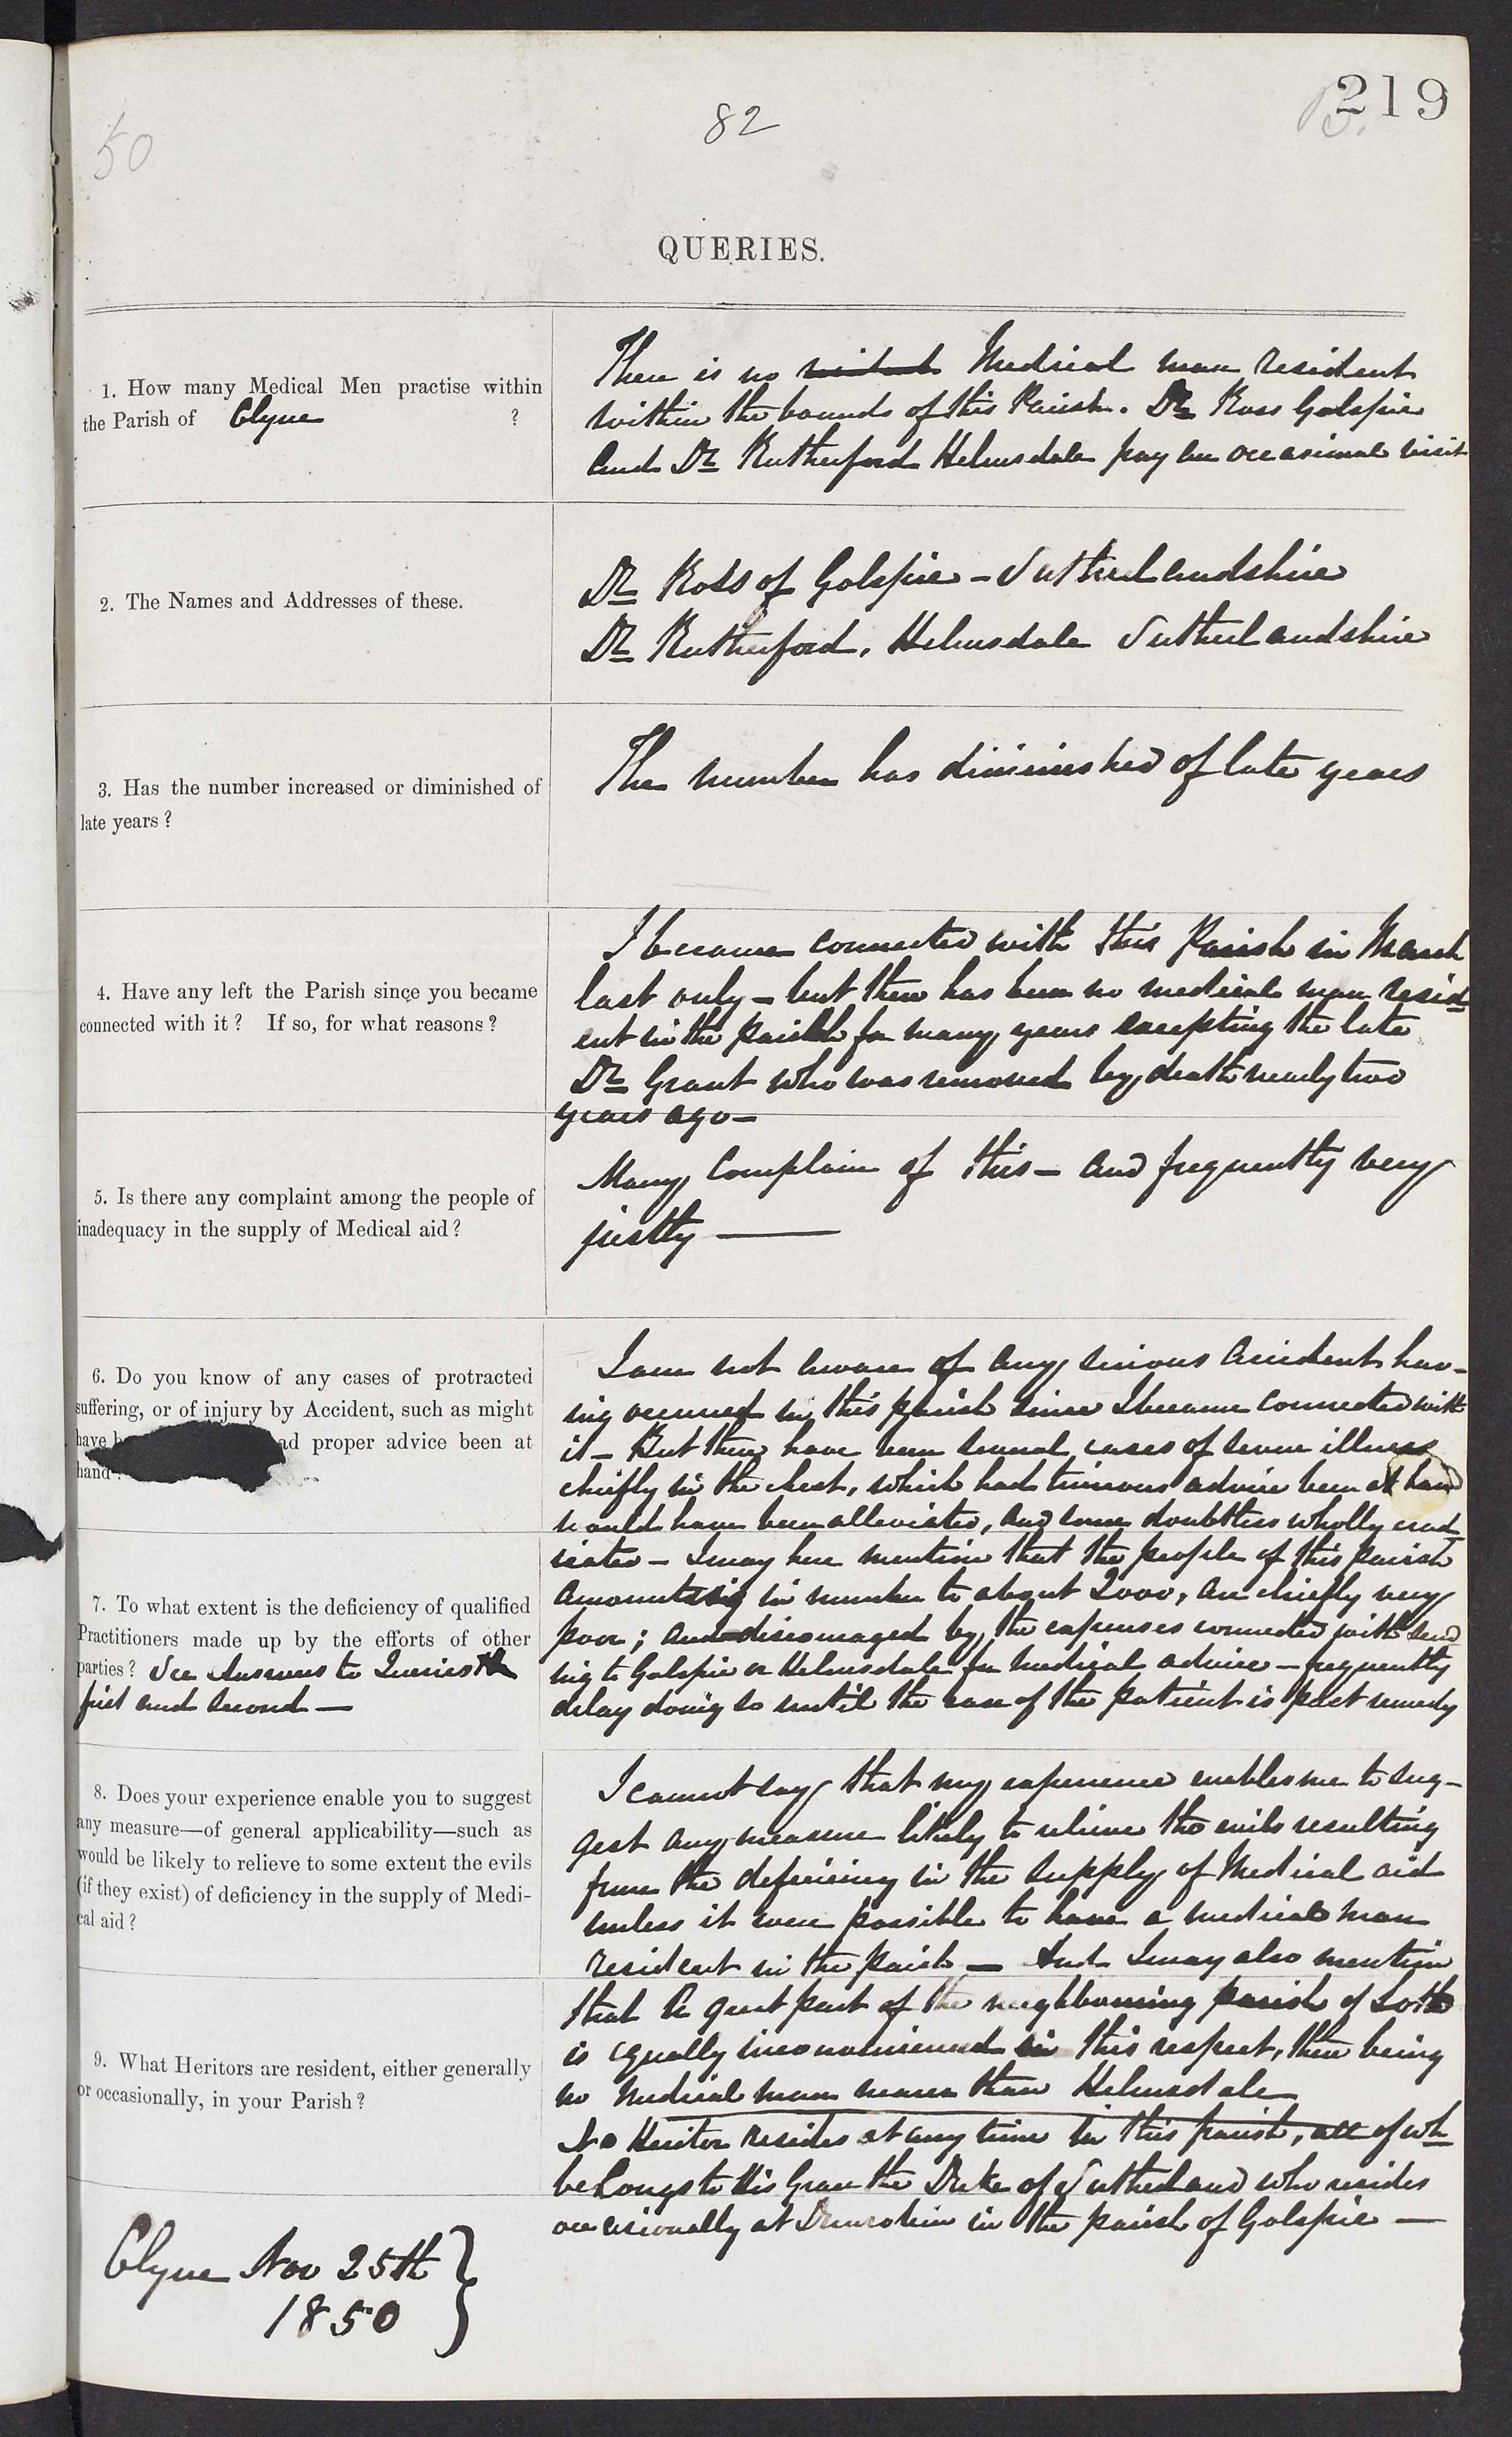 219
82
50
QUERIES.
1. How many Medical Men practise within
the Parish of Clyne ?
There is no Medical man resident
within the bounds of this Parish. Dr Ross Golspie
and Dr Rutherford Helmsdale pay an occasional visit
2. The Names and Addresses of these.
Dr Ross of Golspie - Sutherlandshire
Dr Rutherford, Helmsdale Sutherlandshire
3. Has the number increased or diminished of
late years?
The number has diminished of late years
4. Have any left the Parish since you became
connected with it? If so, for what reasons?
I became connected with this Parish in March
last only - but there has been no medical man resid
ent in the parish for many years excepting the late
Dr Grant who was removed by death nearly two
years ago -
5. Is there any complaint among the people of
inadequacy in the supply of Medical aid?
Many complain of this - and frequently very
justly
6. Do you know of any cases of protracted
suffering, or of injury by Accident, such as might
have ad proper advice been at
hand
I am not aware of any serious accident hav-
ing occurred in this parish since I became connected with
it - But there have been several cases of severe illness
chiefly in the chest, which had timeous advice been at hand
would have been alleviated, and some doubtless wholly erad
icated - I may here mention that the people of this parish
amounting in number to about 2000, are chiefly very
poor; and discouraged by the expenses connected with send
ing to Golspie or Helmsdale for medical advice - frequently
delay doing so until the case of the patient is past remedy
7. To what extent is the deficiency of qualified
Practitioners made up by the efforts of other
parties? See Answers to Queries
first and second -
8. Does your experience enable you to suggest
any measure—of general applicability—such as
would be likely to relieve to some extent the evils
(if they exist) of deficiency in the supply of Medi-
cal aid?
I cannot say that my experience enables me to sug-
gest any measure likely to relieve the evils resulting
from the deficiency in the supply of Medical aid
unless it were possible to have a medical man
resident in the parish - And I may also mention
that a great part of the neighbouring parish of Loth
is equally inconvenienced in this respect, there being
no medical man nearer than Helmsdale
9. What Heritors are resident, either generally
or occasionally, in your Parish?
No Heritor resides at any time in this parish, all of wh
belongs to His Grace the Duke of Sutherland who resides
occasionally at Dunrobin in the parish of Golspie -
Clyne Nov 25th
1850